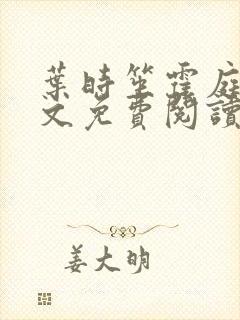 葉時笙霆庭
文免費閱讀
姜大明